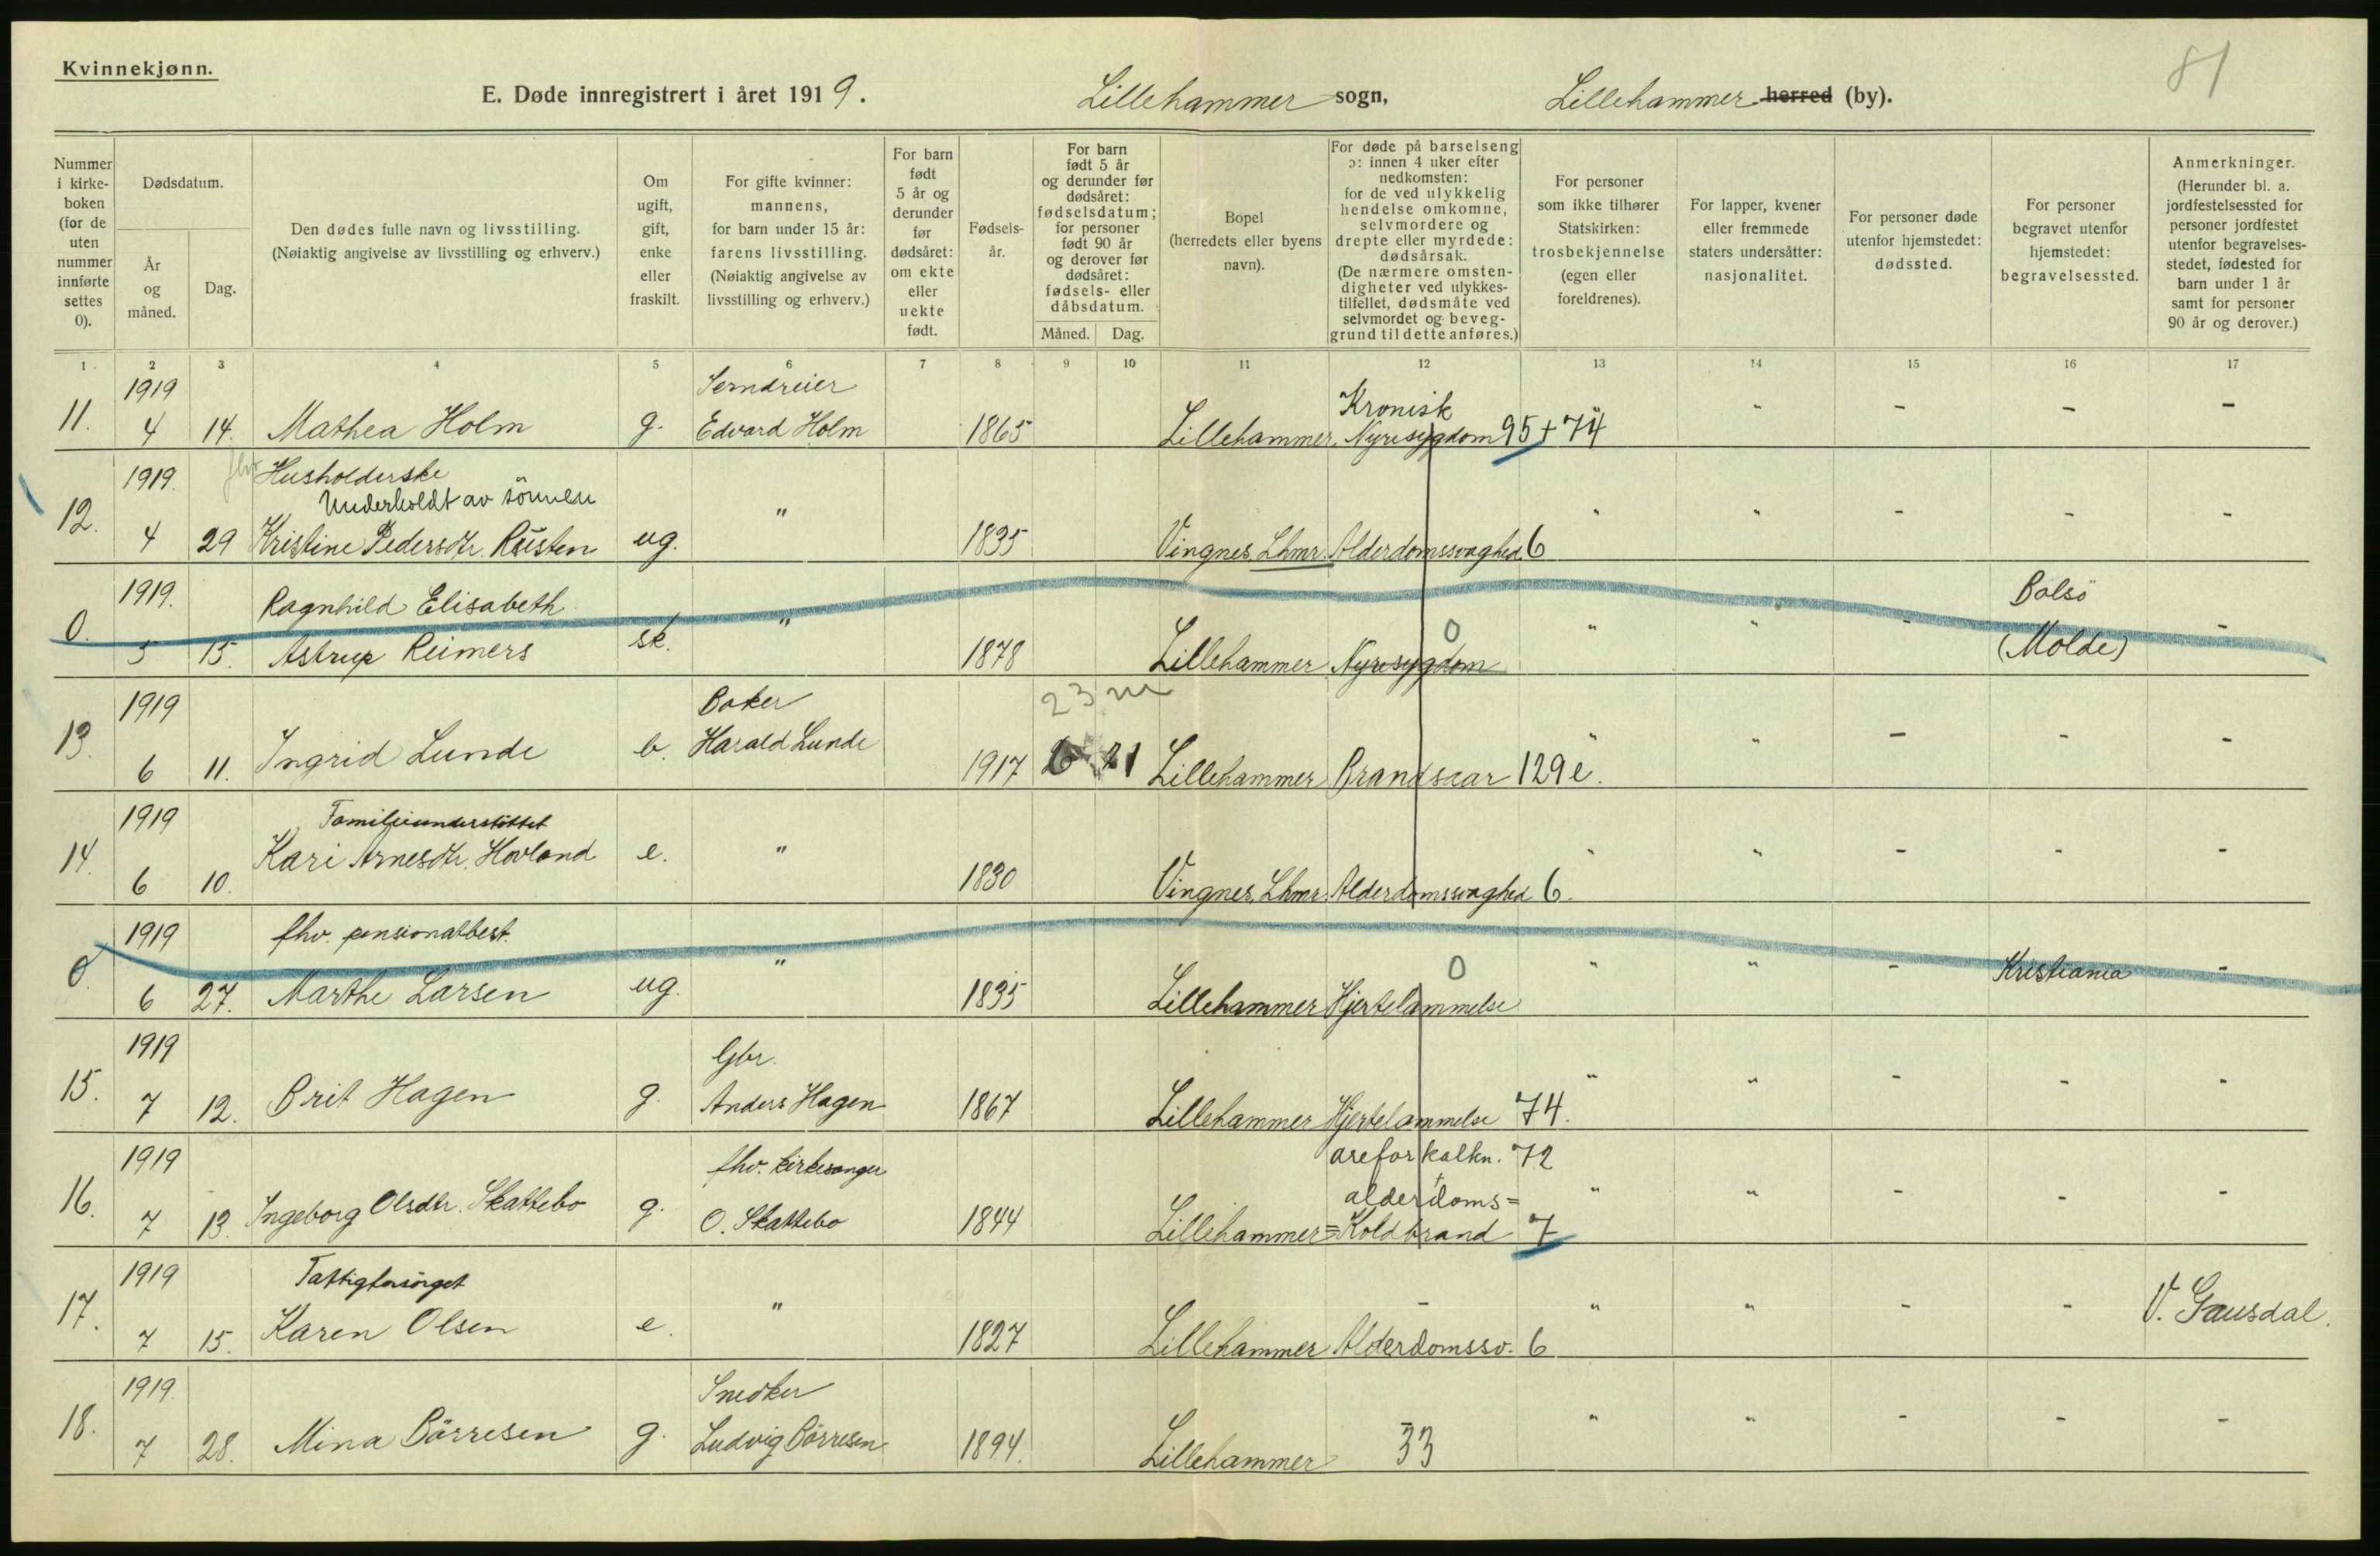 Kvinnekjønn.
81
E. Døde innregistrert i året 1919.
Lillehammer sogn,
Lillehammer herred (by).
Nummer i kirke-boken (for de uten nummer innførte settes 0).
Dødsdatum.
År og måned.
Dag.
Den dødes fulle navn og livsstilling.
(Nøiaktig angivelse av livsstilling og erhverv.)
Om ugift, gift, enke eller fraskilt.
For gifte kvinner: mannens, for barn under 15 år: farens livsstilling. (Nøiaktig angivelse av livsstilling og erhverv.)
For barn født 5 år og derunder før dødsåret: om ekte eller uekte født.
Fødsels-år.
For barn født 5 år og derunder før dødsåret: fødselsdatum; for personer født 90 år og derover før dødsåret: fødsels- eller dåbsdatum.
Måned. Dag.
Bopel (herredets eller byens navn).
For døde på barselseng ɔ: innen 4 uker efter nedkomsten: for de ved ulykkelig hendelse omkomne, selvmordere og drepte eller myrdede: dødsårsak. (De nærmere omsten-digheter ved ulykkes-tilfellet, dødsmåte ved selvmordet og beveg-grund til dette anføres.)
For personer som ikke tilhører Statskirken: trosbekjennelse (egen eller foreldrenes).
For lapper, kvener eller fremmede staters undersåtter: nasjonalitet.
For personer døde utenfor hjemstedet: dødssted.
For personer begravet utenfor hjemstedet: begravelsessted.
Anmerkninger. (Herunder bl. a. jordfestelsessted for personer jordfestet utenfor begravelses-stedet, fødested for barn under 1 år samt for personer 90 år og derover.)
1 2 3 4 5 6 7 8 9 10 11 12 13 14 15 16 17
1919 Kronisk
11. 4 14. Mathea Holm g. Edvard Holm 1865 Lillehammer. Nyresygdom 95 + 74 " " - - -
1919. fhv. Husholderske
Underholdt av sönnen
12. 4 29 Kristine Pedersdtr. Rusten ug. " 1835 Vingnes, Lhmr. Alderdomssvaghed. 6 " " - - -
1919. Ragnhild Elisabeth Bolsö
0. 5 15. Astrup Reimers sk. " 1878 Lillehammer Nyresygdom 0 " " - (Molde) -
1919 Baker 23 m
13. 6 11. Ingrid Lunde b. Harald Lunde 1917 6 21 Lillehammer Brandsaar 129e. " " - - -
1919 Familieunderstöttet
14. 6 10. Kari Arnesdtr. Hovland e. " 1830 Vingnes, Lhmr. Alderdomssvaghed 6. " " - - -
1919 fhv. pensionatbest.
0. 6 27. Marthe Larsen ug. " 1835 Lillehammer Hjertelammelse 0 " " - Kristiania -
1919 Gbr.
15. 7 12. Brit Hagen g. Anders Hagen 1867 Lillehammer Hjertelammelse 74. " " - - -
1919 fhv. kirkesanger areforkalkn. 72
+ alderdoms=
16. 7 13. Ingeborg Olsdtr. Skattebo g. O. Skattebo 1844 Lillehammer =Koldbrand 7 " " - - -
1919 Fattigforsörget
17. 7 15. Karen Olsen e. " 1827 Lillehammer Alderdomssv. 6 " " - - V. Gausdal.
1919. Snedker
18. 7 28. Mina Börresen g. Ludvig Börresen 1894. Lillehammer 33 " " - - -